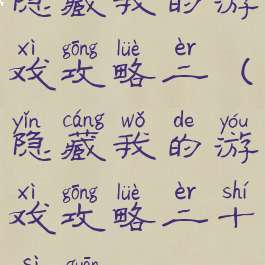 隐藏我的游
xì gōng lüè èr
戏攻略二(
yǐn cáng wǒ de yóu
隐藏我的游
xì gōng lüè èr shí
戏攻略二十
sì guān